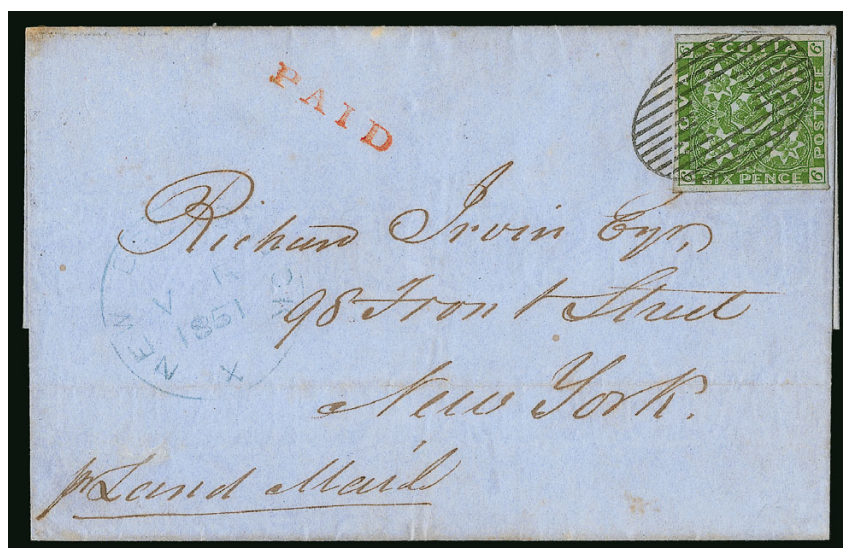 PAID
NOVA SCOTIA
POSTAGE
SIX PENCE
6 6 6 6
Richard Irvin Esqr,
98 Front Street
New York.
NEW
1851
pr Land Mail